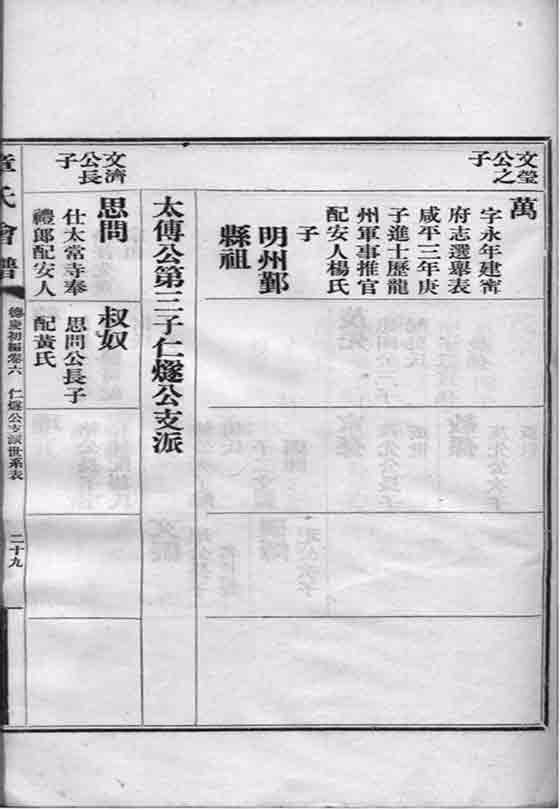 文瑩
公之
子
萬
字永年建寗
府志選舉表
咸平三年庚
子進士歷龍
州軍事推官
配安人楊氏
子
明州鄞
縣祖
太傅公第三子仁燧公支派
文濟
公長
子
思問
仕太常寺奉
禮郎配安人
叔奴
思問公長子
配黃氏
章氏會譜
德慶初編卷六
仁燧公支派世系表
二十九